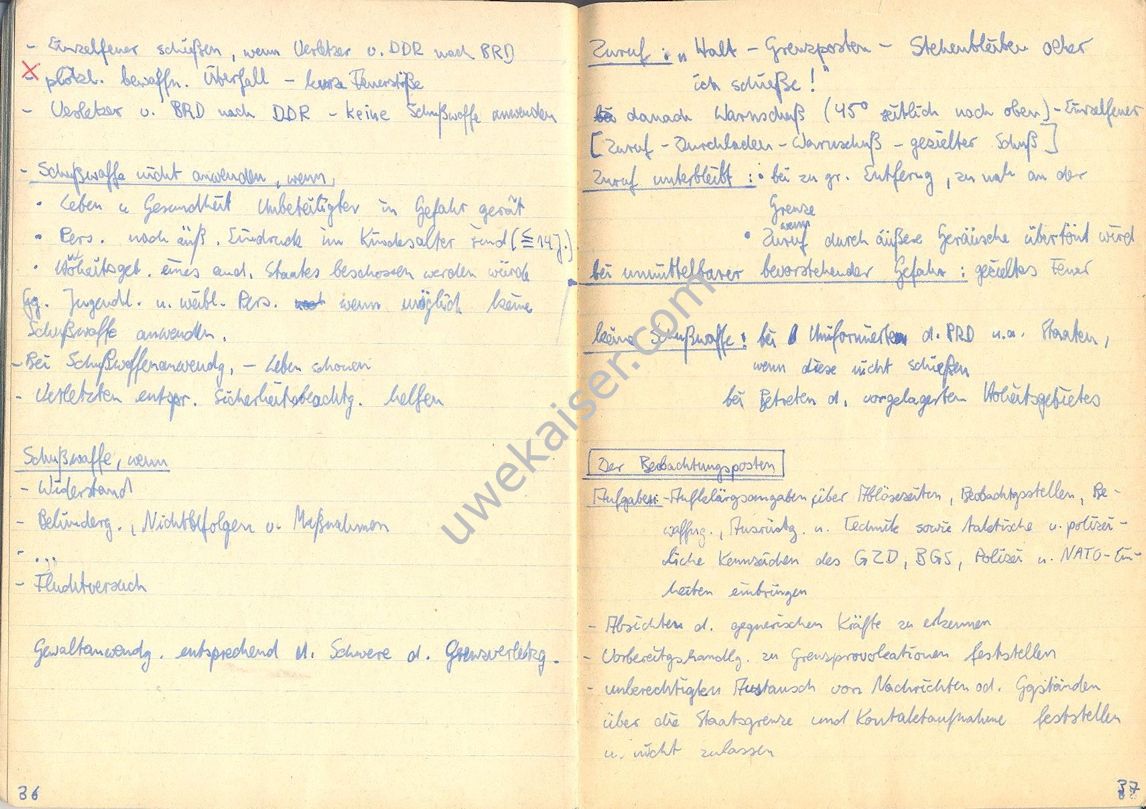 - Einzelfeuer schießen, wenn Verletzer v. DDR nach BRD
- plötzl. bewaffn. Überfall - kurze Feuerstöße
- Verletzer v. BRD nach DDR - keine Schußwaffe anwenden
- Schußwaffe nicht anwenden, wenn,
• Leben u Gesundheit Unbeteiligter in Gefahr gerät
• Pers. nach äuß. Eindruck im Kindesalter sind (≦ 14 J.)
• Hoheitsgeb. eines and. Staates beschossen werden würde
Gg. Jugendl. u. weibl. Pers. wenn möglich keine
Schußwaffe anwenden.
- Bei Schußwaffenanwendg. - Leben schonen
- Verletzten entspr. Sicherheitsbeachtg. helfen
Schußwaffe, wenn
- Widerstand
- Behinderg., Nichtbefolgen v. Maßnahmen
- ...
- Fluchtversuch
Gewaltanwendg. entsprechend d. Schwere d. Grenzverletzg.
36
Zuruf: „Halt - Grenzposten - Stehenbleiben oder
ich schieße!"
danach Warnschuß (45° seitlich nach oben) - Einzelfeuer
[Zuruf - Durchladen - Warnschuß - gezielter Schuß]
Zuruf unterbleibt: • bei zu gr. Entferng, zu nah an der
Grenze
wenn
• Zuruf durch äußere Geräusche übertönt wird
bei unmittelbarer bevorstehender Gefahr: gezieltes Feuer
keine Schußwaffe: bei Uniformierten d. BRD u.a. Staaten,
wenn diese nicht schießen
bei Betreten d. vorgelagerten Hoheitsgebietes
Der Beobachtungsposten
Aufgaben: - Aufklärgsangaben über Ablösezeiten, Beobachtgsstellen, Be-
waffng., Ausrüstg. u. Technik sowie taktische u. polizei-
liche Kennzeichen des GZD, BGS, Polizei u. NATO-Ein-
heiten einbringen
- Absichten d. gegnerischen Kräfte zu erkennen
- Vorbereitgshandlg. zu Grenzprovokationen feststellen
- unberechtigten Austausch von Nachrichten od. Ggständen
über die Staatsgrenze und Kontaktaufnahme feststellen
u. nicht zulassen
37
uwekaiser.com